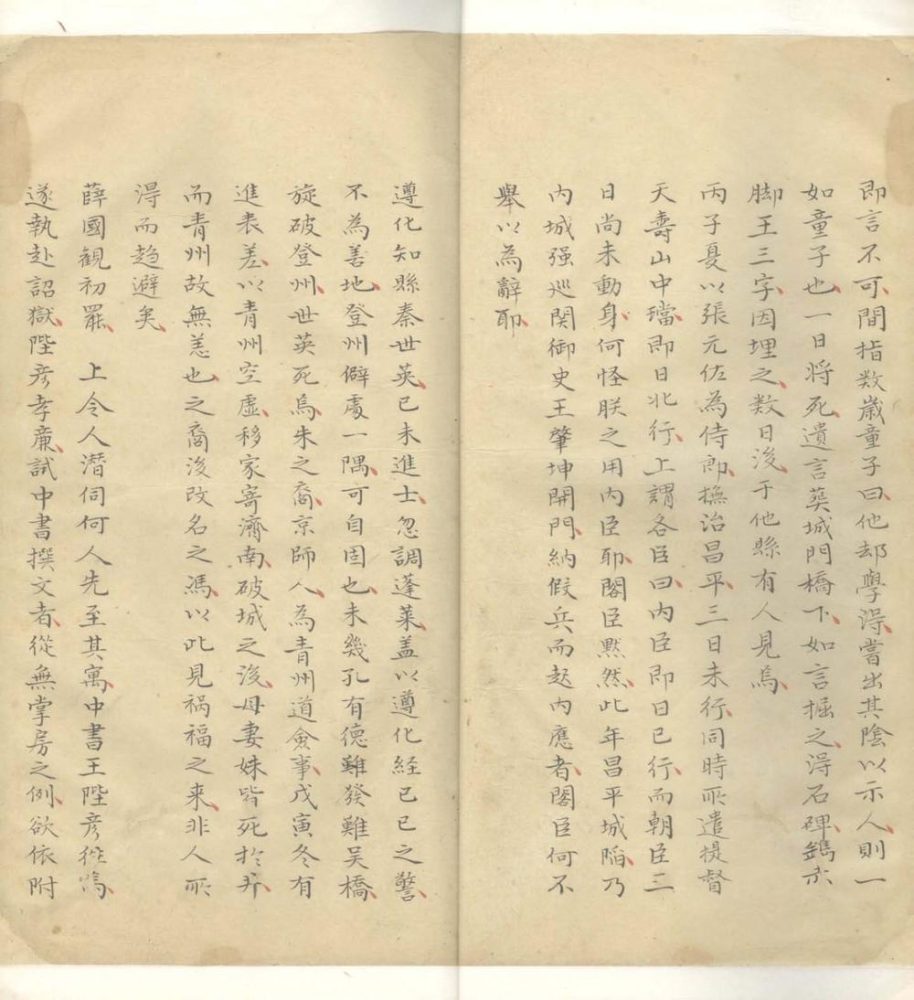 即言不可間指数歲童子曰他却學淂嘗出其陰以示人則一
如童子也一日将死遺言𦵏城門橋下如言掘之淂石碑鐫赤
脚王三字因埋之数日後于他縣有人見焉
丙子夏以張元佐為侍郎撫治昌平三日未行同時所遣提督
天壽山中璫即日北行上謂各臣曰内臣即日已行而朝臣三
日尚未動身何怪朕之用内臣耶閣臣黙然此年昌平城陷乃
内城强廵関御史王肇坤開門納假兵而起内應者閣臣何不
舉以為辭耶
遵化知縣秦世英己未進士忽調蓬萊盖以遵化経己巳之警
不為善地登州僻處一隅可自固也未幾孔有德難發難吴橋
旋破登州世英死焉朱之裔京師人為青州道僉事戊寅冬有
進表差以青州空虚移家寄濟南破城之後母妻妹皆死於井
而青州故無恙也之裔後改名之馮以此見禍福之来非人所
淂而趋避矣
薛國観初罷 上令人潜伺何人先至其寓中書王陛彦徃焉
遂執赴詔獄陛彦孝廉試中書撰文者從無掌房之例欲依附